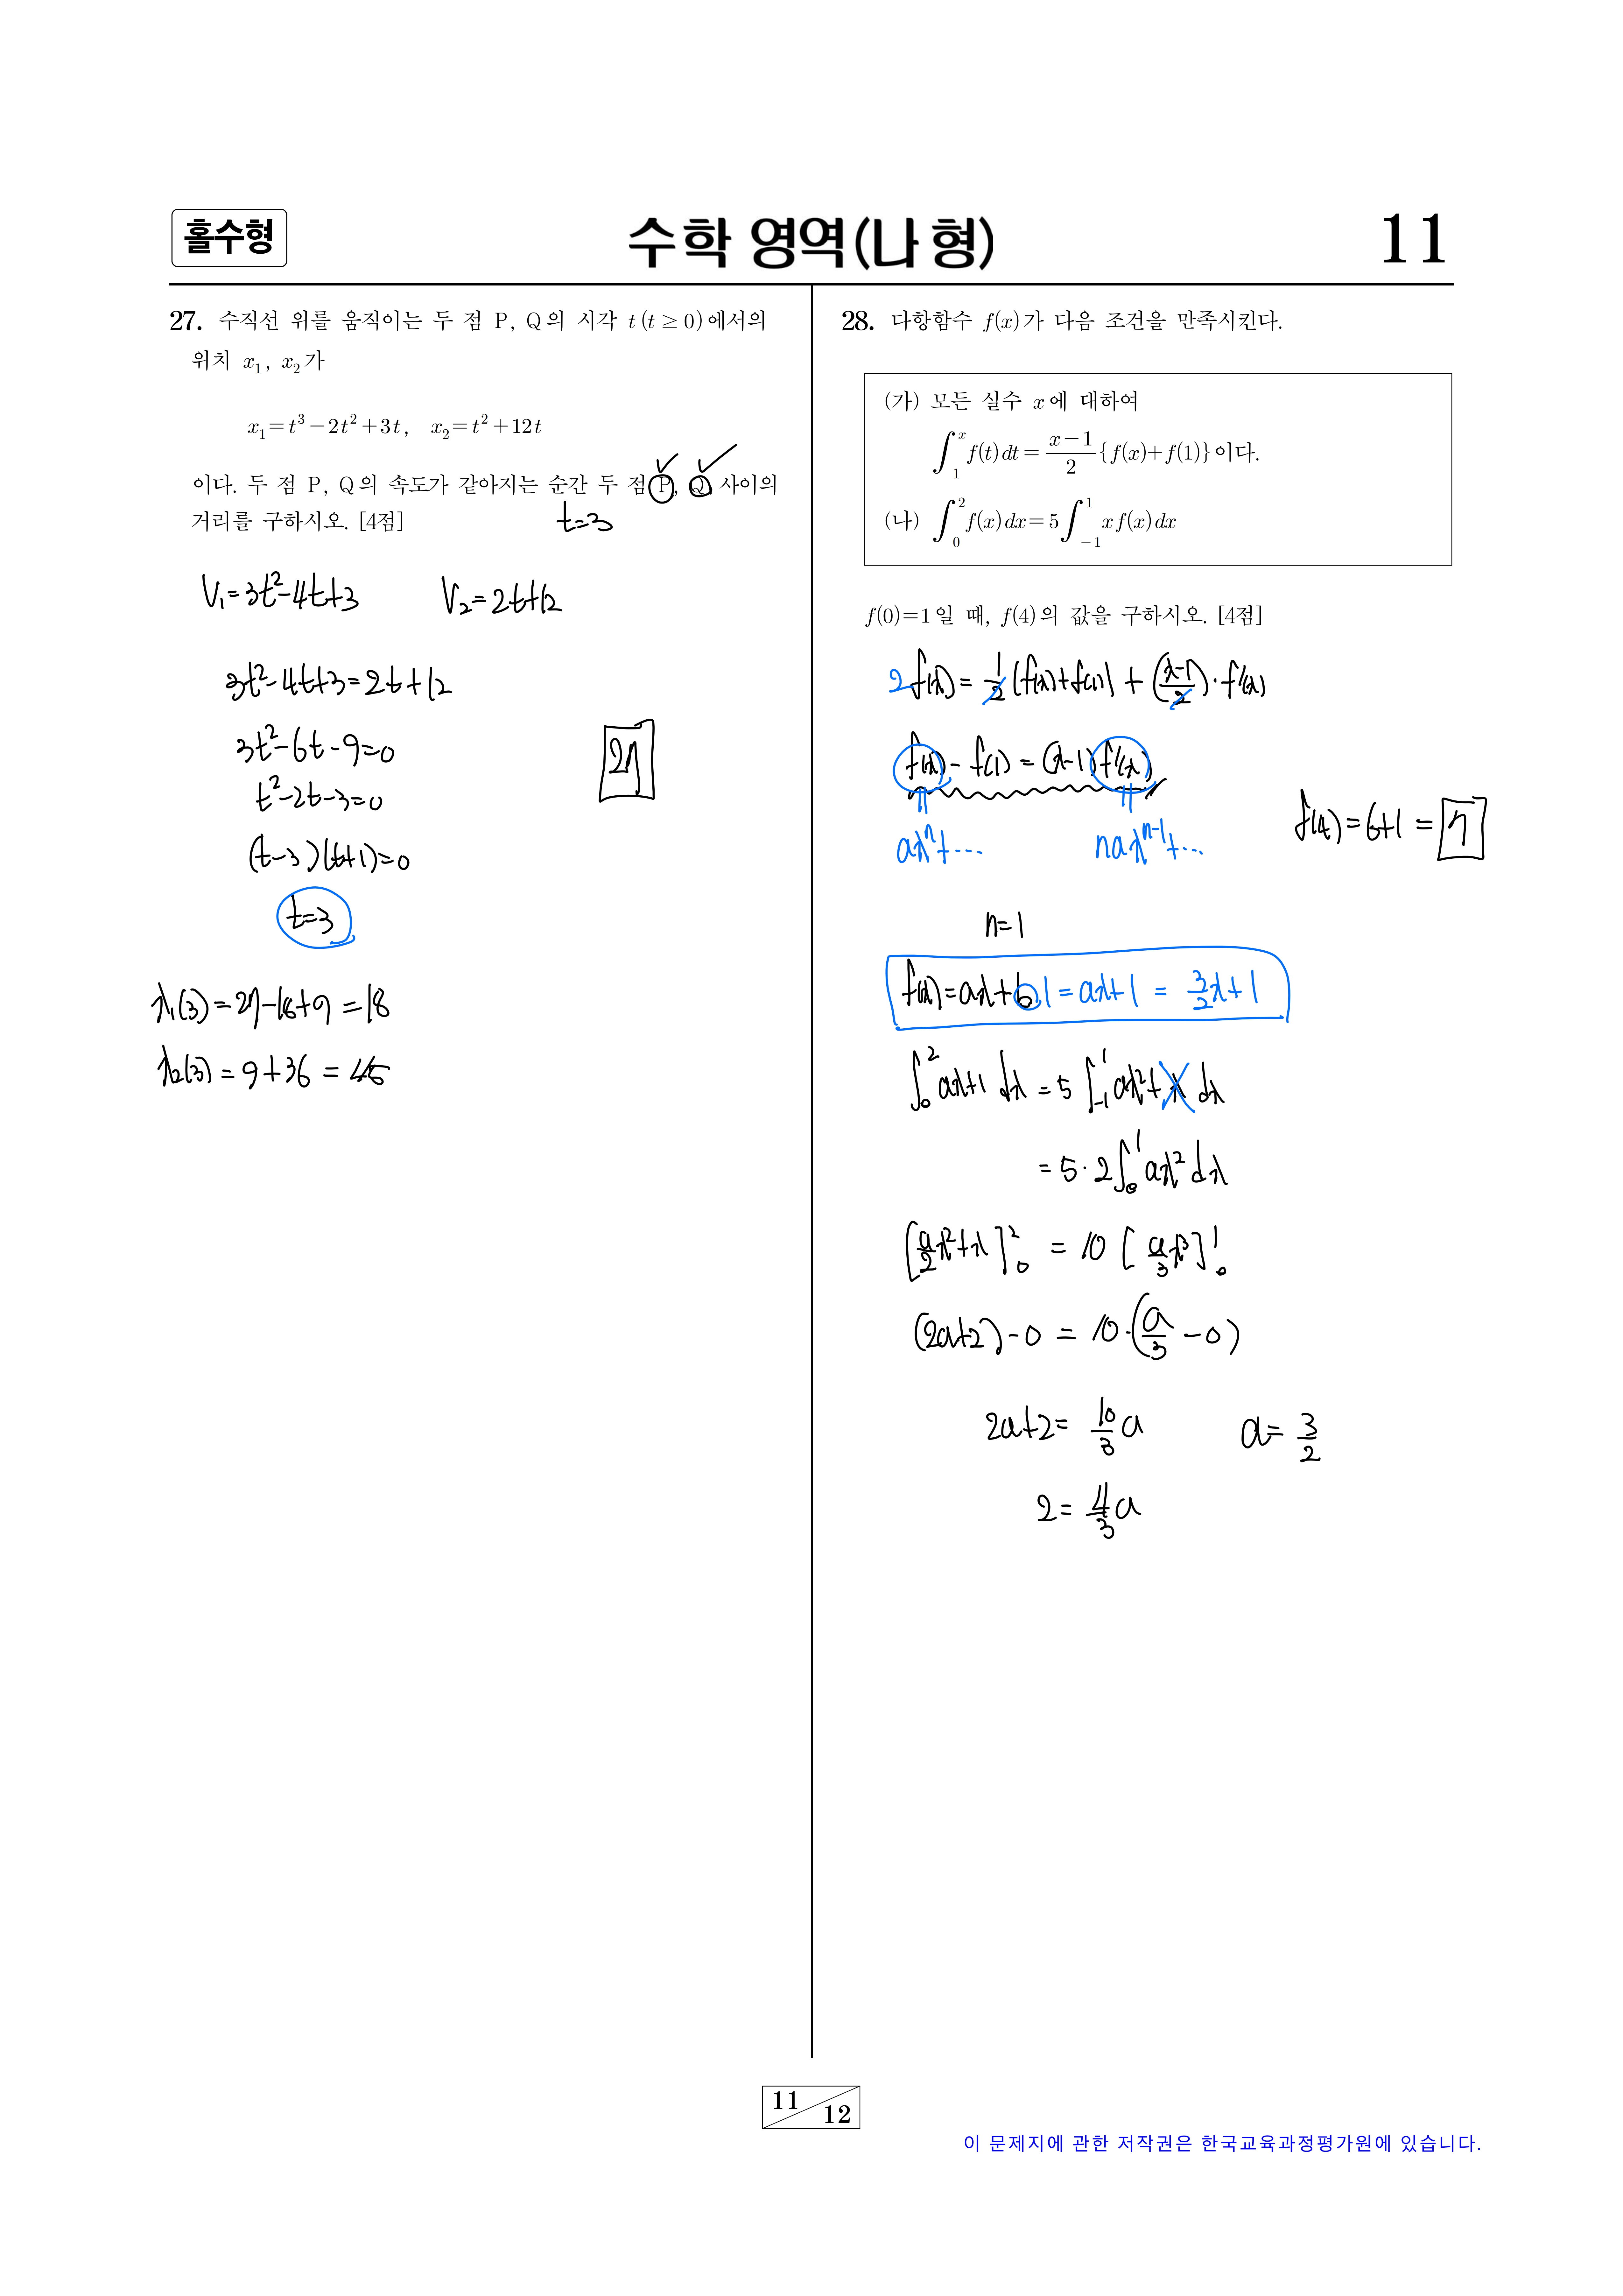 홀수형
수학 영역(나 형)
11
27. 수직선 위를 움직이는 두 점 P, Q의 시각 t (t ≥ 0)에서의
위치 x₁, x₂가
x₁ = t³ − 2t² + 3t, x₂ = t² + 12t
이다. 두 점 P, Q의 속도가 같아지는 순간 두 점 P, Q 사이의
거리를 구하시오. [4점]
t=3
V₁=3t²-4t+3 V₂=2t+12
3t²-4t+3=2t+12
3t²-6t-9=0
t²-2t-3=0
(t-3)(t+1)=0
t=3
27
x₁(3)=27-18+9=18
x₂(3)=9+36=45
28. 다항함수 f(x)가 다음 조건을 만족시킨다.
(가) 모든 실수 x에 대하여
∫₁ˣ f(t)dt = (x−1)/2 {f(x)+f(1)}이다.
(나) ∫₀² f(x)dx = 5∫₋₁¹ xf(x)dx
f(0)=1일 때, f(4)의 값을 구하시오. [4점]
2f(x)=1/2(f(x)+f(1))+((x-1)/2)·f'(x)
f(x)-f(1)=(x-1)f'(x)
ax^n+··· nax^(n-1)+···
f(4)=6+1=7
n=1
f(x)=ax+b 1=ax+1=3/2x+1
∫₀² ax+1 dx = 5∫₋₁¹ ax²+x dx
=5·2∫₀¹ ax² dx
[a/2x²+x]₀² = 10[a/3x³]₀¹
(2a+2)-0=10·(a/3-0)
2a+2=10/3a a=3/2
2=4/3a
11
12
이 문제지에 관한 저작권은 한국교육과정평가원에 있습니다.